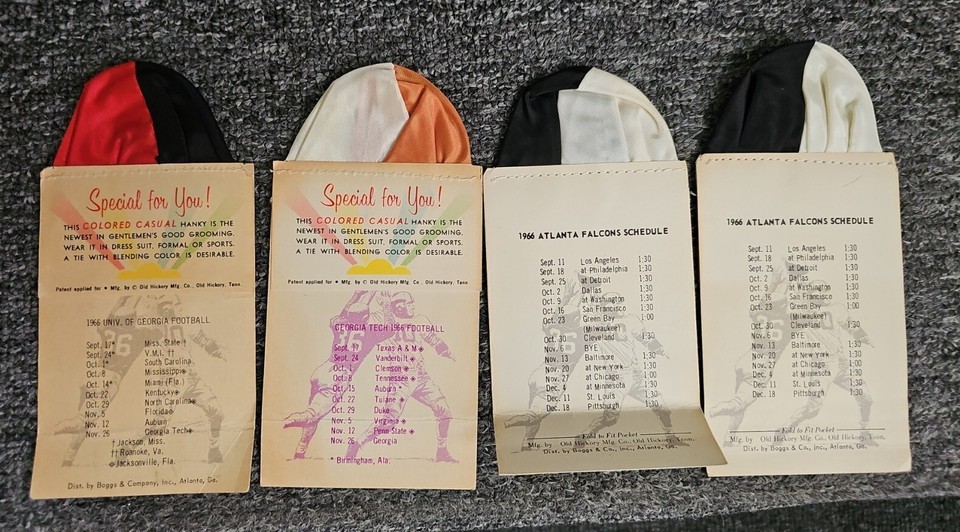 Special for You!
THIS COLORED CASUAL HANKY IS THE
NEWEST IN GENTLEMEN'S GOOD GROOMING.
WEAR IT IN DRESS SUIT, FORMAL OR SPORTS.
A TIE WITH BLENDING COLOR IS DESIRABLE.
Patent applied for • Mfg. by © Old Hickory Mfg. Co., Old Hickory, Tenn.
1966 UNIV. OF GEORGIA FOOTBALL
Sept. 17* Miss. State†
Sept. 24* V.M.I. ††
Oct. 1* South Carolina
Oct. 8 Mississippi
Oct. 14* Miami (Fla.)
Oct. 22 Kentucky
Oct. 29 North Carolina
Nov. 5 Florida
Nov. 12 Auburn
Nov. 26 Georgia Tech
† Jackson, Miss.
†† Roanoke, Va.
Jacksonville, Fla.
Dist. by Boggs & Company, Inc., Atlanta, Ga.
Special for You!
THIS COLORED CASUAL HANKY IS THE
NEWEST IN GENTLEMEN'S GOOD GROOMING.
WEAR IT IN DRESS SUIT, FORMAL OR SPORTS.
A TIE WITH BLENDING COLOR IS DESIRABLE.
Patent applied for • Mfg. by © Old Hickory Mfg. Co., Old Hickory, Tenn.
GEORGIA TECH 1966 FOOTBALL
Sept. 17 Texas A & M
Sept. 24 Vanderbilt
Oct. 1 Clemson
Oct. 8 Tennessee
Oct. 15 Auburn *
Oct. 22 Tulane
Oct. 29 Duke
Nov. 5 Virginia
Nov. 12 Penn State
Nov. 26 Georgia
* Birmingham, Ala.
1966 ATLANTA FALCONS SCHEDULE
Sept. 11 Los Angeles 1:30
Sept. 18 at Philadelphia 1:30
Sept. 25 at Detroit 1:30
Oct. 2 Dallas 1:30
Oct. 9 at Washington 1:30
Oct. 16 San Francisco 1:30
Oct. 23 Green Bay 1:00
(Milwaukee)
Oct. 30 Cleveland 1:30
Nov. 6 BYE
Nov. 13 Baltimore 1:30
Nov. 20 at New York 1:30
Nov. 27 at Chicago 1:00
Dec. 4 at Minnesota 1:30
Dec. 11 St. Louis 1:30
Dec. 18 Pittsburgh 1:30
Fold to Fit Pocket
Mfg. by Old Hickory Mfg. Co., Old Hickory, Tenn.
Dist. by Boggs & Co., Inc., Atlanta, Ga.
1966 ATLANTA FALCONS SCHEDULE
Sept. 11 Los Angeles 1:30
Sept. 18 at Philadelphia 1:30
Sept. 25 at Detroit 1:30
Oct. 2 Dallas 1:30
Oct. 9 at Washington 1:30
Oct. 16 San Francisco 1:30
Oct. 23 Green Bay 1:00
(Milwaukee)
Oct. 30 Cleveland 1:30
Nov. 6 BYE
Nov. 13 Baltimore 1:30
Nov. 20 at New York 1:30
Nov. 27 at Chicago 1:00
Dec. 4 at Minnesota 1:30
Dec. 11 St. Louis 1:30
Dec. 18 Pittsburgh 1:30
Fold to Fit Pocket
Mfg. by Old Hickory Mfg. Co., Old Hickory, Tenn.
Dist. by Boggs & Co., Inc., Atlanta, Ga.